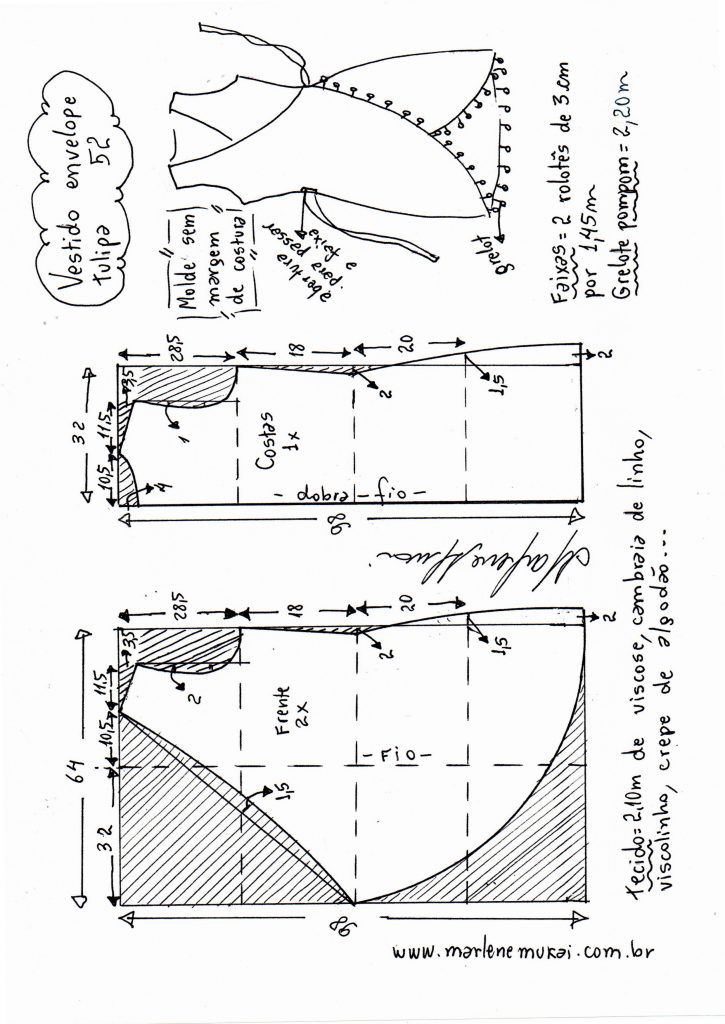 Vestido envelope
tulipa 52
"Molde sem
margem
de costura"
abertura
para passar
a faixa
grelot
Faixas = 2 rolotês de 3cm
por 1,45m
Grelote pompom = 2,20m
32
10,5
11,5
3,5
28,5
18
20
4
1
2
1,5
2
Costas
1x
- dobra - fio -
98
Marlene Mukai
64
32
10,5
11,5
3,5
28,5
18
20
2
2
1,5
2
1,5
Frente
2x
- FIO -
98
Tecido = 2,10m de viscose, cambraia de linho,
viscolinho, crepe de algodão...
www.marlenemukai.com.br